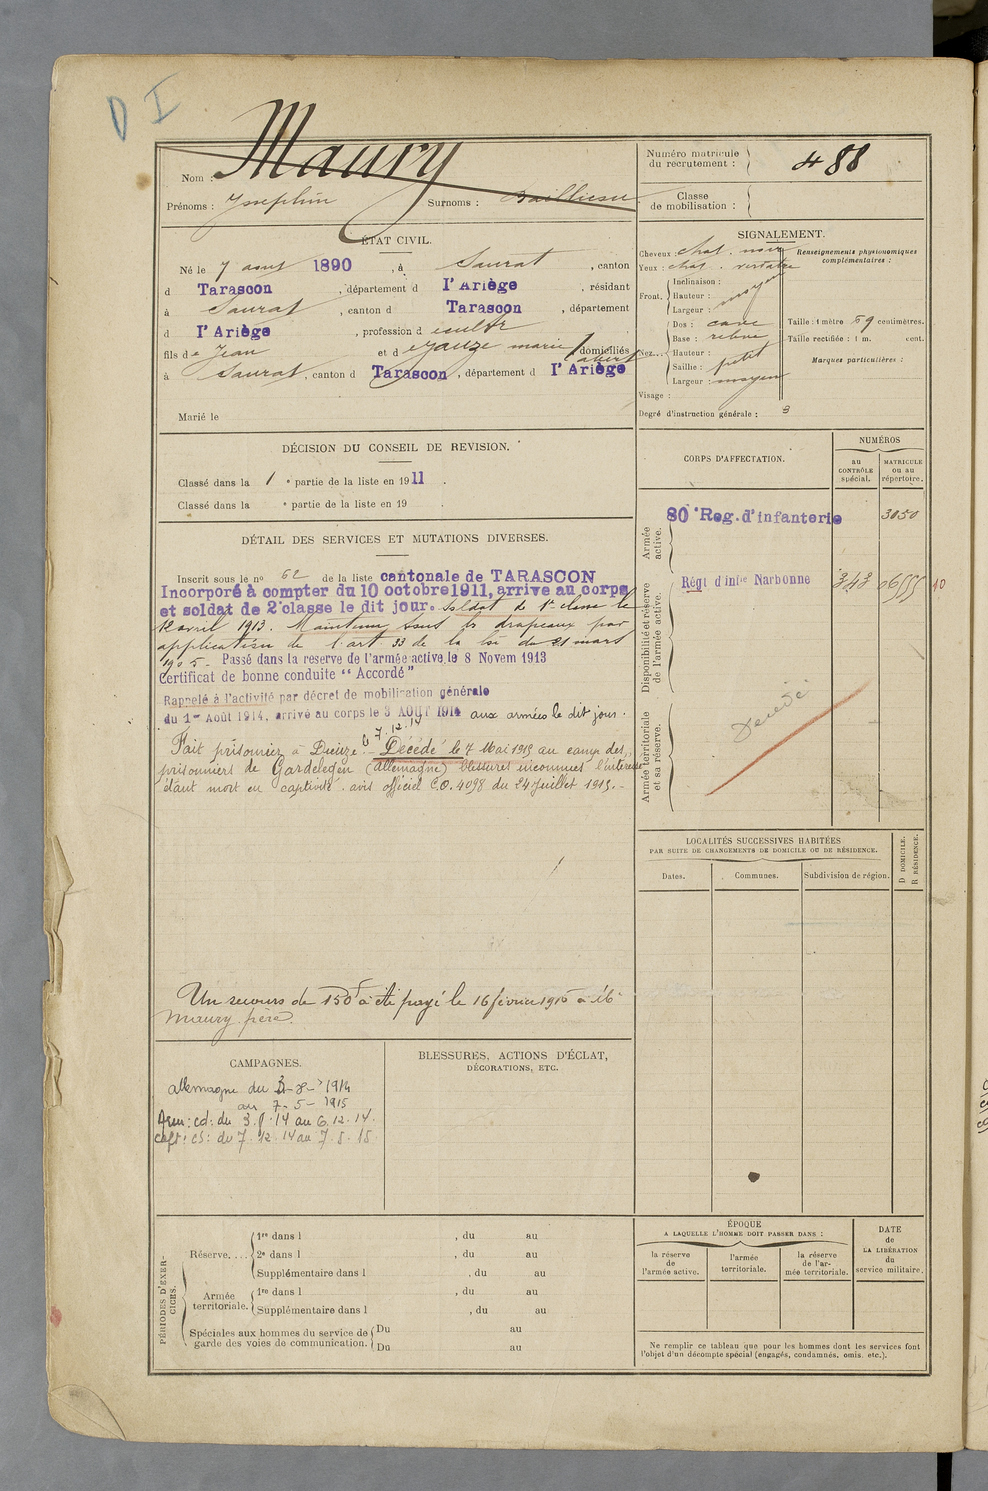 D I
Nom : Maury
Prénoms : Josephin Surnoms :
Numéro matricule du recrutement : 488
Classe de mobilisation :
ÉTAT CIVIL.
Né le 7 aout 1890, à Saurat, canton
d Tarascon, département d l'Ariège, résidant
à Saurat, canton d Tarascon, département
d l'Ariège, profession d
fils de Jean et d marie domiciliés
à Saurat, canton d Tarascon, département d l'Ariège
Marié le
SIGNALEMENT.
Cheveux chat. noir
Yeux : chat. verdatre
Renseignements physionomiques complémentaires :
Front. Inclinaison :
Hauteur : moyen
Largeur :
Nez... Dos : cave
Base : relevé
Hauteur :
Saillie : petit
Largeur : moyen
Taille : 1 mètre 59 centimètres.
Taille rectifiée : 1 m. cent.
Marques particulières :
Visage :
Degré d'instruction générale : 3
DÉCISION DU CONSEIL DE REVISION.
Classé dans la 1 e partie de la liste en 1911.
Classé dans la e partie de la liste en 19 .
DÉTAIL DES SERVICES ET MUTATIONS DIVERSES.
Inscrit sous le no 62 de la liste cantonale de TARASCON
Incorporé à compter du 10 octobre 1911, arrive au corps
et soldat de 2e classe le dit jour. Soldat de 1e classe le
12 avril 1913. Maintenu sous les drapeaux par
application de l'art 33 de la loi du 21 mars
1905. Passé dans la reserve de l'armée active, le 8 Novem 1913
Certificat de bonne conduite " Accordé"
Rappelé à l'activité par décret de mobilisation générale
du 1er Août 1914, arrivé au corps le 3 AOUT 1914 aux armées le dit jour.
7.12.14
Fait prisonnier à Dieuze. Décédé le 7 Mai 1915 au camp des
prisonniers de Gardelegen (Allemagne) blessures inconnues l'interessé
étant mort en captivité. avis officiel C.O. 4098 du 24 Juillet 1915.
Un secours de 150f a été payé le 16 février 1916 à Mr
Maury père
CORPS D'AFFECTATION.
NUMÉROS
au CONTRÔLE spécial.
MATRICULE ou au répertoire.
Armée active.
80e Reg. d'infanterie 3050
Disponibilité et réserve de l'armée active.
Régt d'infie Narbonne 343 06555 10
Armée territoriale et sa réserve.
Décédé
LOCALITÉS SUCCESSIVES HABITÉES
PAR SUITE DE CHANGEMENTS DE DOMICILE OU DE RÉSIDENCE.
Dates. Communes. Subdivision de région. D DOMICILE. R RÉSIDENCE.
CAMPAGNES.
Allemagne du 3-8-1914
au 7-5-1915
cd: du 3.8.14 au 6.12.14.
Capt: cs: du 7.12.14 au 7.5.15
BLESSURES, ACTIONS D'ÉCLAT,
DÉCORATIONS, ETC.
PÉRIODES D'EXERCICES.
Réserve.... 1re dans l , du au
2e dans l , du au
Supplémentaire dans l , du au
Armée territoriale. 1re dans l , du au
Supplémentaire dans l , du au
Spéciales aux hommes du service de garde des voies de communication. Du au
Du au
ÉPOQUE
A LAQUELLE L'HOMME DOIT PASSER DANS :
la réserve de l'armée active.
l'armée territoriale.
la réserve de l'armée territoriale.
DATE de LA LIBÉRATION du service militaire.
Ne remplir ce tableau que pour les hommes dont les services font
l'objet d'un décompte spécial (engagés, condamnés, omis, etc.).